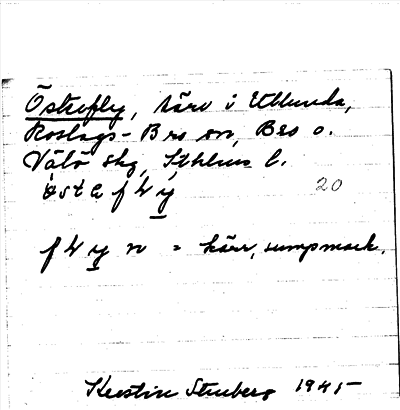 Österfly, kärr i Utlunda,
Roslags-Bro sn, Bro o.
Vätö skg, Sthlms l.
östɑ fly 20
fly n = kärr, sumpmark.
Kerstin Stuberg 1945